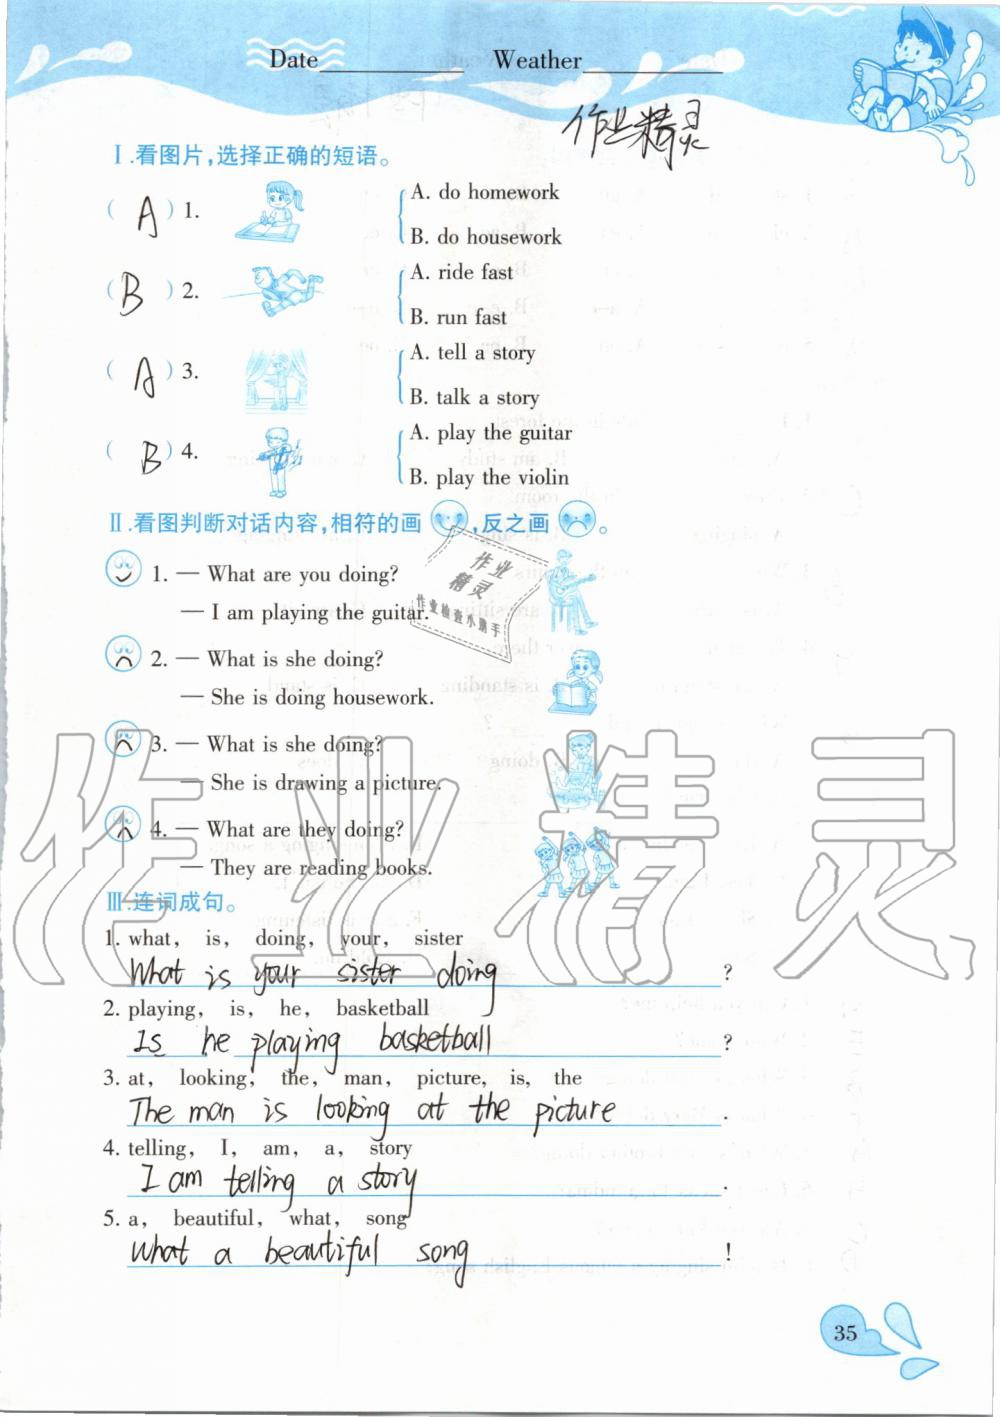 Date Weather
作业精灵
Ⅰ.看图片,选择正确的短语。
( A )1. A. do homework
B. do housework
( B )2. A. ride fast
B. run fast
( A )3. A. tell a story
B. talk a story
( B )4. A. play the guitar
B. play the violin
Ⅱ.看图判断对话内容,相符的画 ,反之画 。
1. — What are you doing?
— I am playing the guitar.
作业
精灵
作业检查小助手
2. — What is she doing?
— She is doing housework.
3. — What is she doing?
— She is drawing a picture.
4. — What are they doing?
— They are reading books.
作业精灵
Ⅲ.连词成句。
1. what, is, doing, your, sister
What is your sister doing ?
2. playing, is, he, basketball
Is he playing basketball ?
3. at, looking, the, man, picture, is, the
The man is looking at the picture .
4. telling, I, am, a, story
I am telling a story .
5. a, beautiful, what, song
What a beautiful song !
35